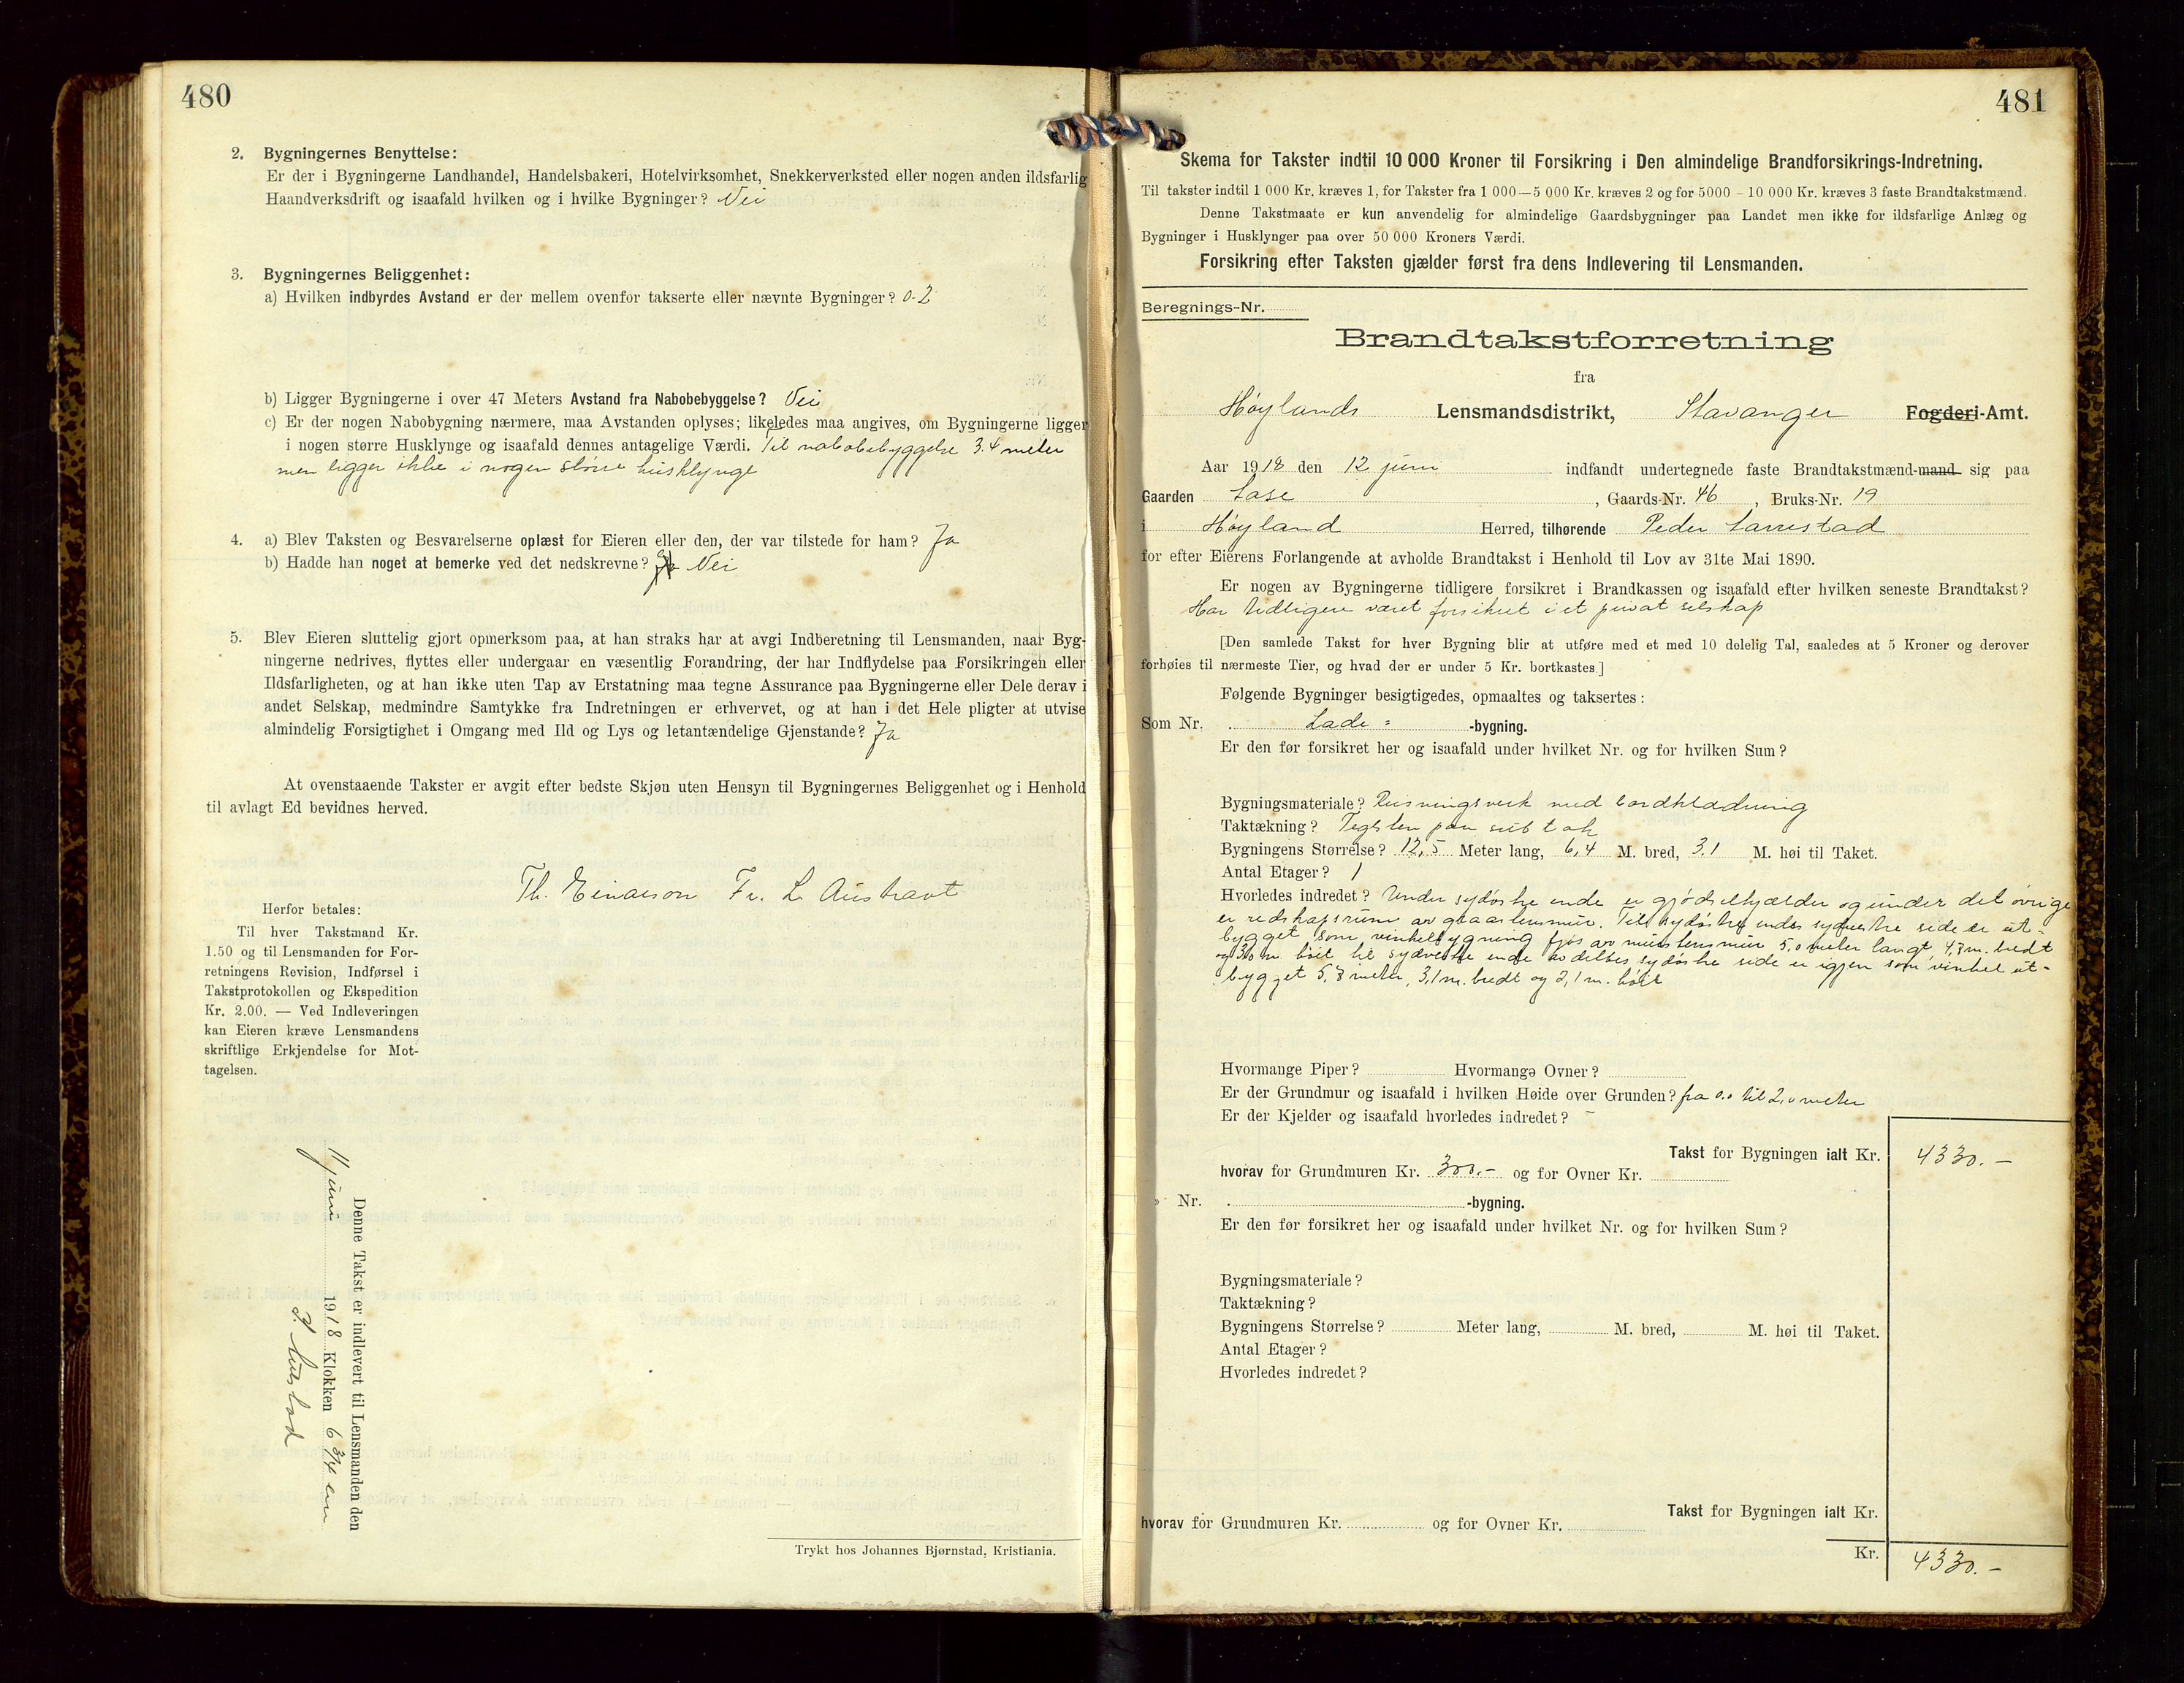 480
2. Bygningernes Benyttelse:
Er der i Bygningerne Landhandel, Handelsbakeri, Hotelvirksomhet, Snekkerverksted eller nogen anden ildsfarlig
Haandverksdrift og isaafald hvilken og i hvilke Bygninger? Nei
3. Bygningernes Beliggenhet:
a) Hvilken indbyrdes Avstand er der mellem ovenfor takserte eller nævnte Bygninger? 0.2
b) Ligger Bygningerne i over 47 Meters Avstand fra Nabobebyggelse? Nei
c) Er der nogen Nabobygning nærmere, maa Avstanden oplyses; likeledes maa angives, om Bygningerne ligger
i nogen større Husklynge og isaafald dennes antagelige Værdi. Til nabobebyggelse 3.4 meter
men ligger ikke i nogen større husklynge
4. a) Blev Taksten og Besvarelserne oplæst for Eieren eller den, der var tilstede for ham? Ja
b) Hadde han noget at bemerke ved det nedskrevne? Nei
5. Blev Eieren sluttelig gjort opmerksom paa, at han straks har at avgi Indberetning til Lensmanden, naar Byg-
ningerne nedrives, flyttes eller undergaar en væsentlig Forandring, der har Indflydelse paa Forsikringen eller
Ildsfarligheten, og at han ikke uten Tap av Erstatning maa tegne Assurance paa Bygningerne eller Dele derav i
andet Selskap, medmindre Samtykke fra Indretningen er erhvervet, og at han i det Hele pligter at utvise
almindelig Forsigtighet i Omgang med Ild og Lys og letantændelige Gjenstande? Ja
At ovenstaaende Takster er avgit efter bedste Skjøn uten Hensyn til Bygningernes Beliggenhet og i Henhold
til avlagt Ed bevidnes herved.
Th. Einarson Fr. L. Austraat
Herfor betales:
Til hver Takstmand Kr.
1.50 og til Lensmanden for For-
retningens Revision, Indførsel i
Takstprotokollen og Ekspedition
Kr. 2.00. — Ved Indleveringen
kan Eieren kræve Lensmandens
skriftlige Erkjendelse for Mot-
tagelsen.
Denne Takst er indlevert til Lensmanden den
juni 1918 Klokken 6 3/4 em
Trykt hos Johannes Bjørnstad, Kristiania.
481
Skema for Takster indtil 10 000 Kroner til Forsikring i Den almindelige Brandforsikrings-Indretning.
Til takster indtil 1 000 Kr. kræves 1, for Takster fra 1 000—5 000 Kr. kræves 2 og for 5000 - 10 000 Kr. kræves 3 faste Brandtakstmænd.
Denne Takstmaate er kun anvendelig for almindelige Gaardsbygninger paa Landet men ikke for ildsfarlige Anlæg og
Bygninger i Husklynger paa over 50 000 Kroners Værdi.
Forsikring efter Taksten gjælder først fra dens Indlevering til Lensmanden.
Beregnings-Nr.
Brandtakstforretning
fra
Høylands Lensmandsdistrikt, Stavanger Fogderi-Amt.
Aar 1918 den 12 juni indfandt undertegnede faste Brandtakstmænd-mand sig paa
Gaarden Lase, Gaards-Nr. 46, Bruks-Nr. 19
i Høyland Herred, tilhørende Peder Larrestad
for efter Eierens Forlangende at avholde Brandtakst i Henhold til Lov av 31te Mai 1890.
Er nogen av Bygningerne tidligere forsikret i Brandkassen og isaafald efter hvilken seneste Brandtakst?
Har tidligere været forsikret i et privat selskap
[Den samlede Takst for hver Bygning blir at utføre med et med 10 delelig Tal, saaledes at 5 Kroner og derover
forhøies til nærmeste Tier, og hvad der er under 5 Kr. bortkastes.]
Følgende Bygninger besigtigedes, opmaaltes og taksertes:
Som Nr. Lade= -bygning.
Er den før forsikret her og isaafald under hvilket Nr. og for hvilken Sum?
Bygningsmateriale? Reisningsverk med bordklædning
Taktækning? Teglsten paa sutetak
Bygningens Størrelse? 12,5 Meter lang, 6,4 M. bred, 3.1 M. høi til Taket.
Antal Etager? 1
Hvorledes indredet? Under sydøstre ende er gjødselkjælder og under det øvrige
er redskapsrum av graastensmur. Til sydøstre endes sydvestre side er ut-
bygget som vinkelbygning fjøs av murstensmur 5,0 meter langt, 4,7 m. bredt
og 3,0 m høit til sydvestre ende av dettes sydøstre side er igjen som vinkel ut-
bygget 5,8 meter, 3,1 m. bredt og 2,1 m. høit
Hvormange Piper? Hvormange Ovner?
Er der Grundmur og isaafald i hvilken Høide over Grunden? fra 0.0 til 2,0 meter
Er der Kjelder og isaafald hvorledes indredet? -
Takst for Bygningen ialt Kr. 4330.-
hvorav for Grundmuren Kr. 300.- og for Ovner Kr.
» Nr. -bygning.
Er den før forsikret her og isaafald under hvilket Nr. og for hvilken Sum?
Bygningsmateriale?
Taktækning?
Bygningens Størrelse? Meter lang, M. bred, M. høi til Taket.
Antal Etager?
Hvorledes indredet?
Takst for Bygningen ialt Kr.
hvorav for Grundmuren Kr. og for Ovner Kr.
Kr. 4330.-